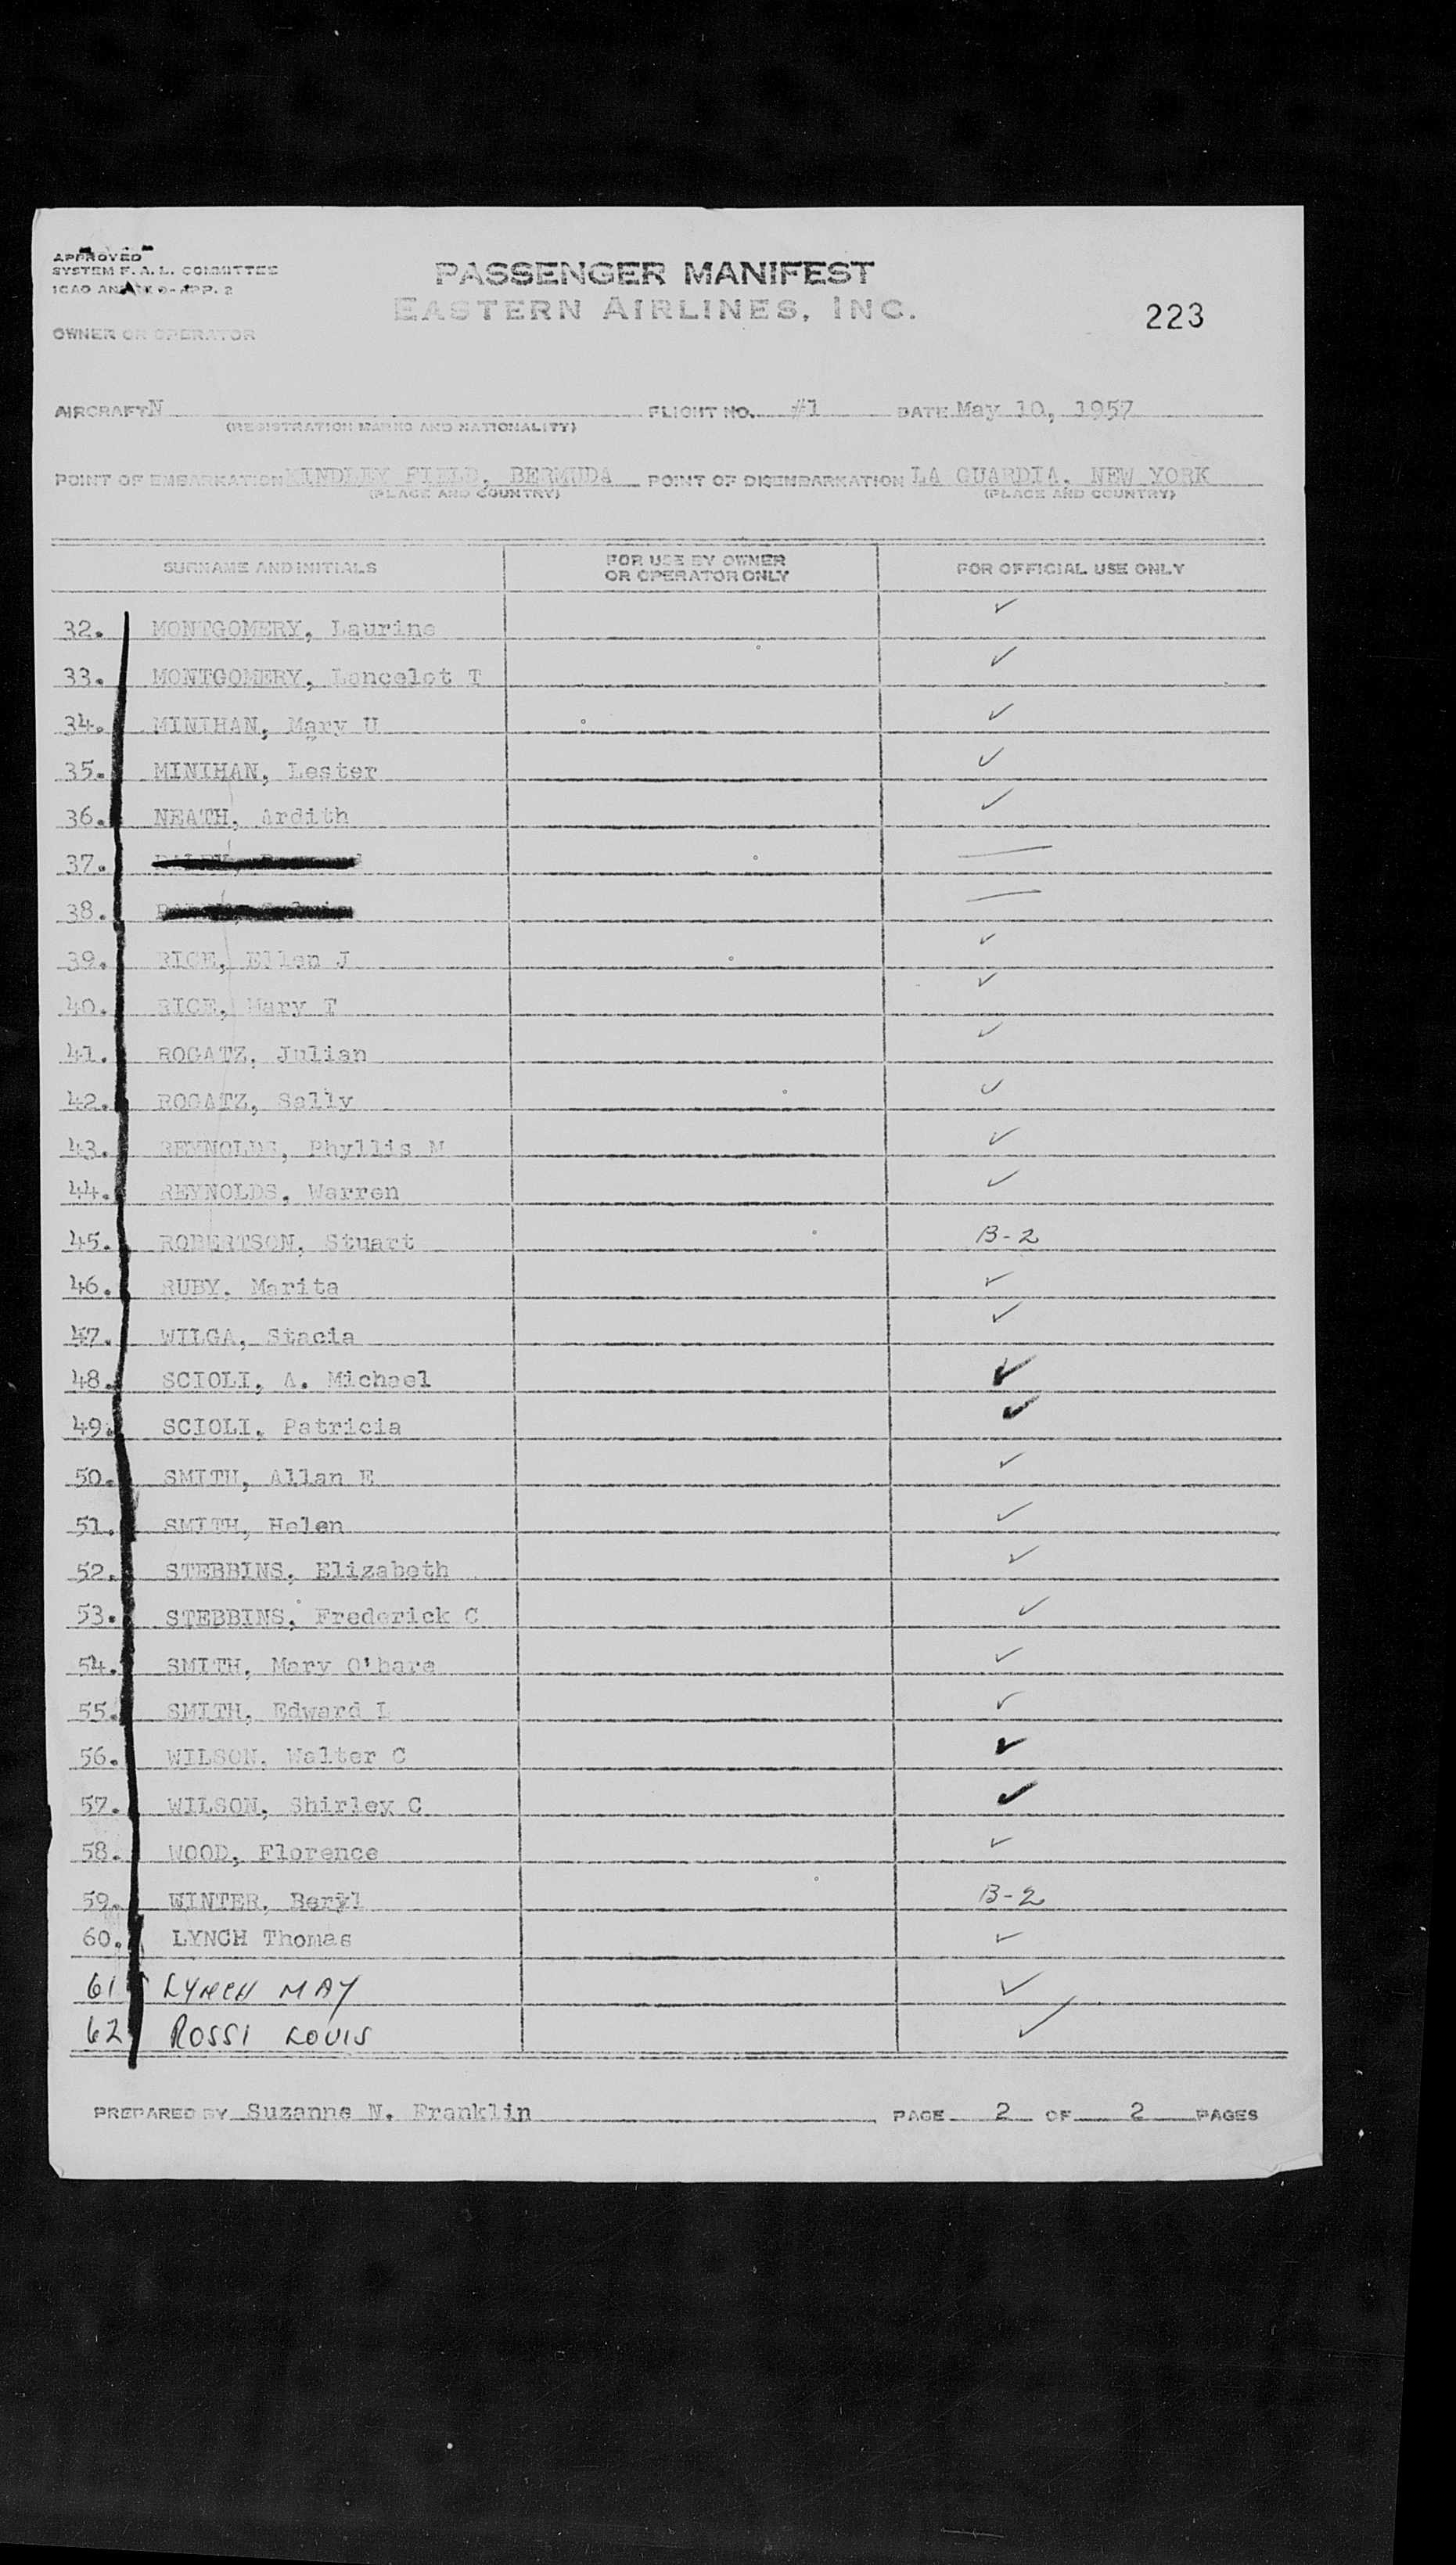 APPROVED
SYSTEM F. A. L. COMMITTEE
ICAO ANNEX 9-APP. 2
OWNER OR OPERATOR
PASSENGER MANIFEST
EASTERN AIRLINES, INC.
223
AIRCRAFT N FLIGHT NO. #1 DATE May 10, 1957
(REGISTRATION MARKS AND NATIONALITY)
POINT OF EMBARKATION KINDLEY FIELD, BERMUDA POINT OF DISEMBARKATION LA GUARDIA, NEW YORK
(PLACE AND COUNTRY) (PLACE AND COUNTRY)
SURNAME AND INITIALS FOR USE BY OWNER OR OPERATOR ONLY FOR OFFICIAL USE ONLY
32. MONTGOMERY, Laurine ✓
33. MONTGOMERY, Lancelot T ✓
34. MINIHAN, Mary U ✓
35. MINIHAN, Lester ✓
36. NEATH, Ardith ✓
37. —
38. —
39. RICE, Ellen J ✓
40. RICE, Mary T ✓
41. ROGATZ, Julian ✓
42. ROGATZ, Sally ✓
43. REYNOLDS, Phyllis M ✓
44. REYNOLDS, Warren ✓
45. ROBERTSON, Stuart B-2
46. RUBY, Marita ✓
47. WILGA, Stacia ✓
48. SCIOLI, A. Michael ✓
49. SCIOLI, Patricia ✓
50. SMITH, Allan E ✓
51. SMITH, Helen ✓
52. STEBBINS, Elizabeth ✓
53. STEBBINS, Frederick C ✓
54. SMITH, Mary O'hara ✓
55. SMITH, Edward L ✓
56. WILSON, Walter C ✓
57. WILSON, Shirley C ✓
58. WOOD, Florence ✓
59. WINTER, Beryl B-2
60. LYNCH Thomas ✓
61 LYNCH MAY ✓
62 ROSSI LOUIS ✓
PREPARED BY Suzanne N. Franklin PAGE 2 OF 2 PAGES